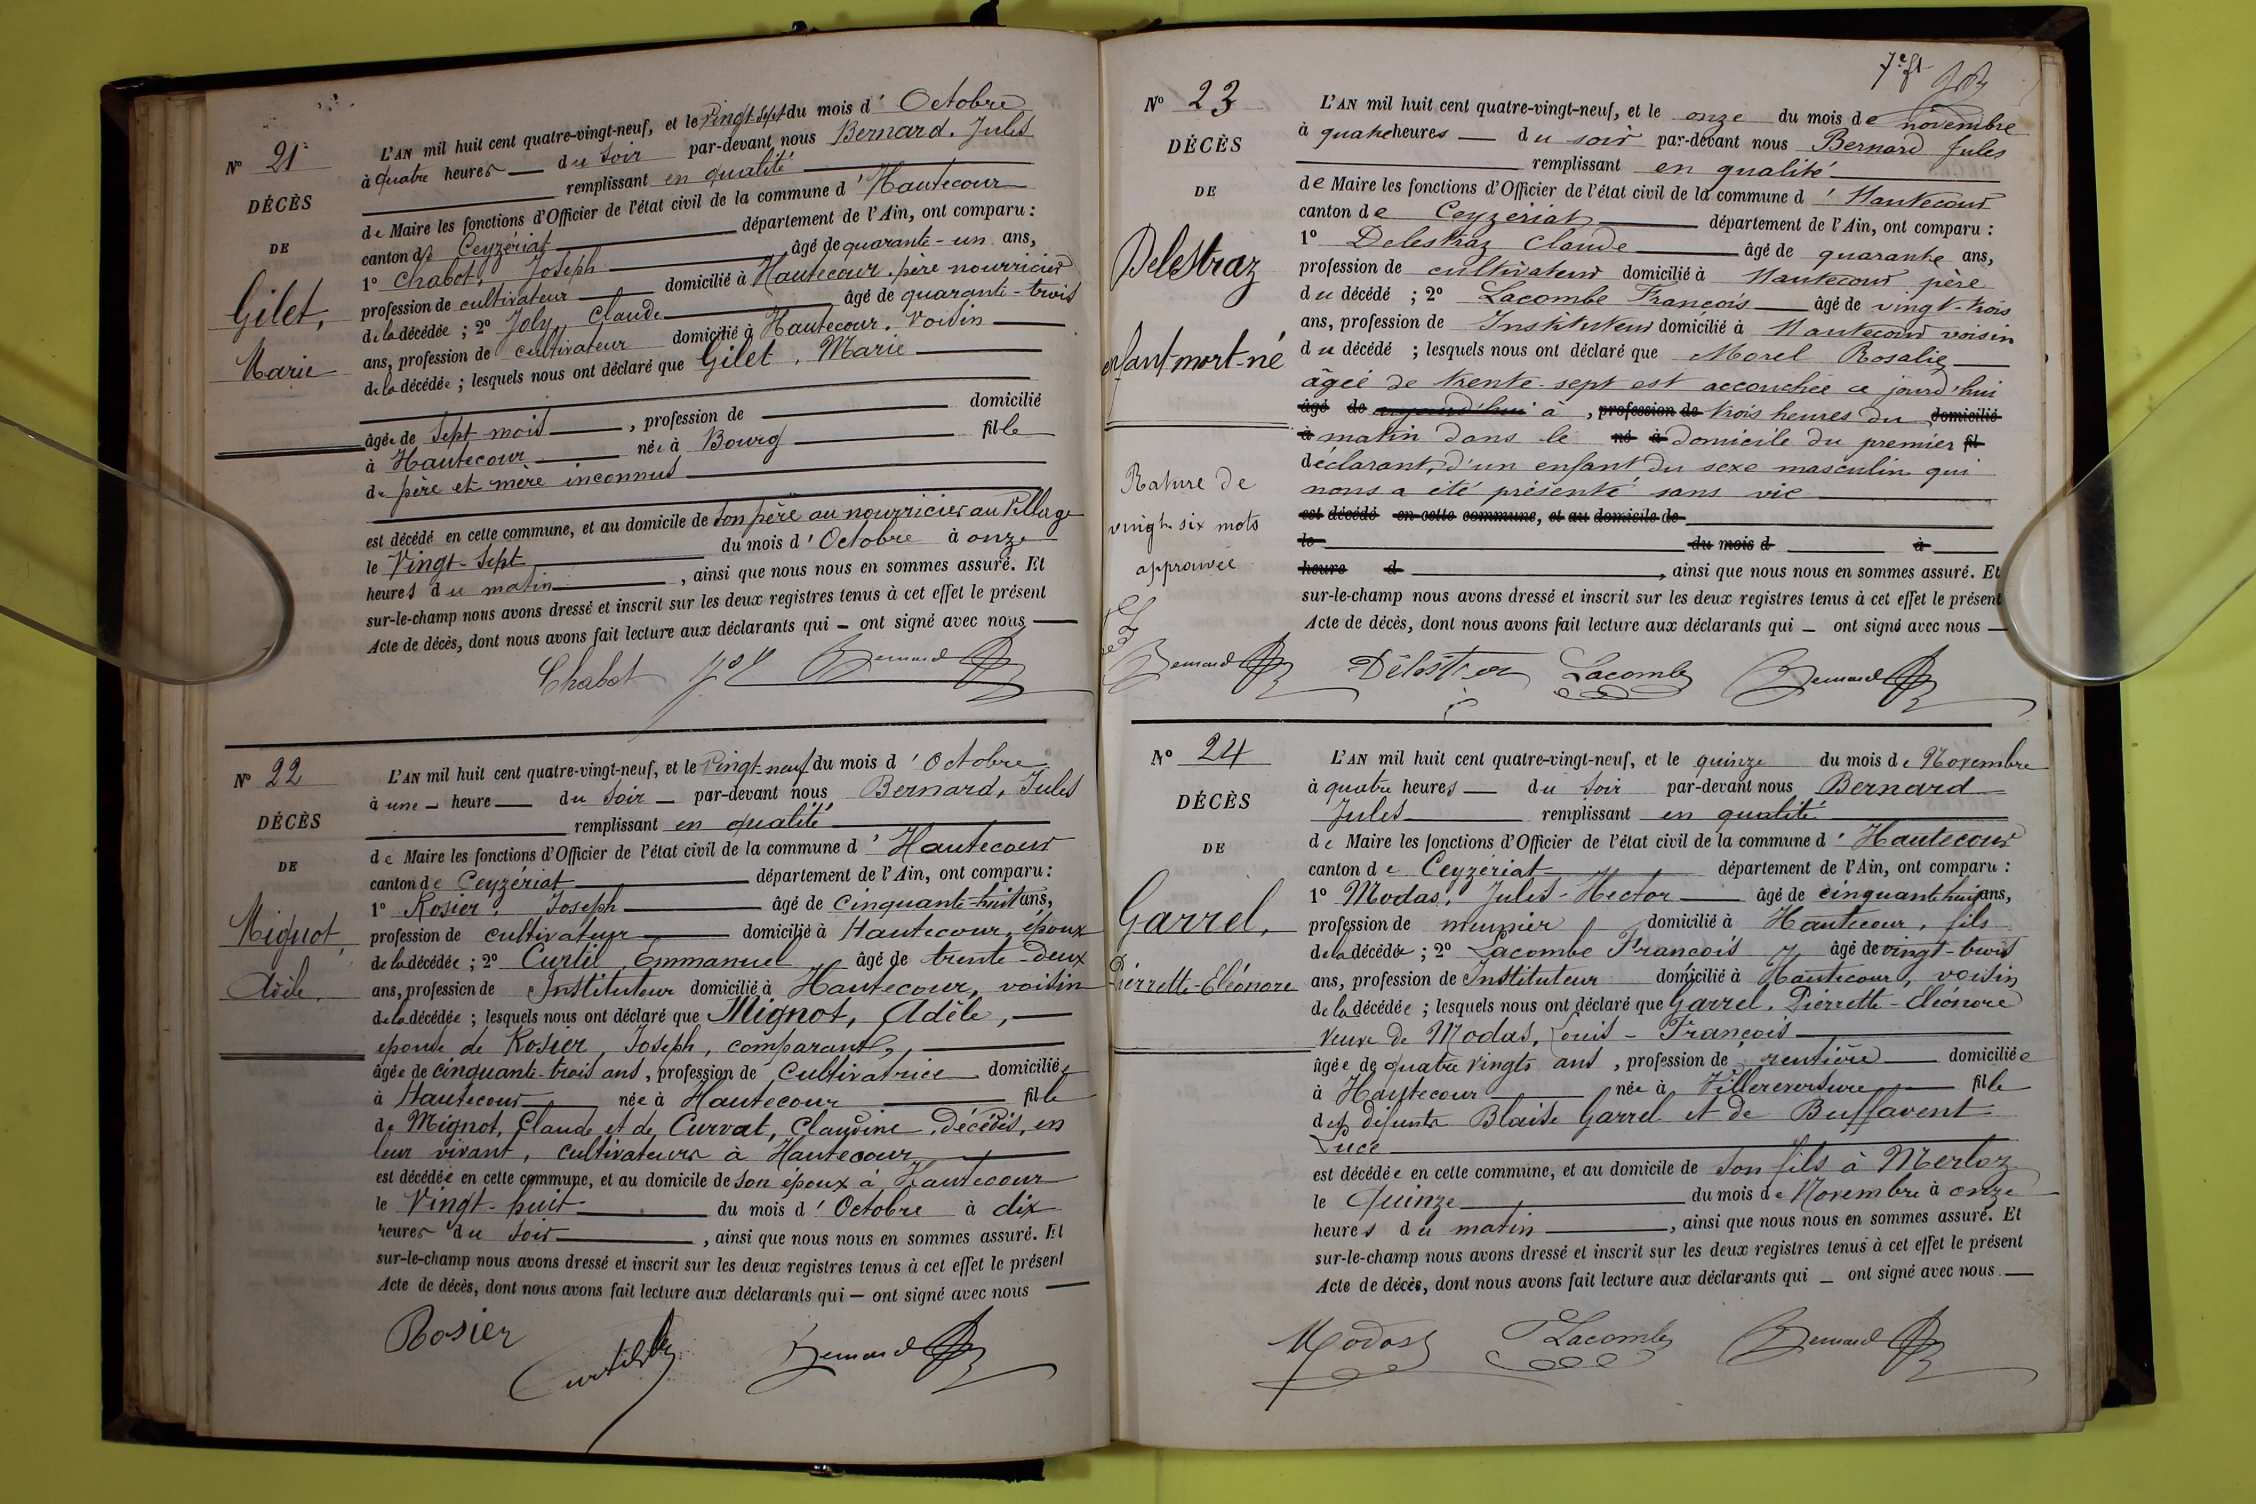 N° 21
DÉCÈS
DE
Gilet,
Marie
L'AN mil huit cent quatre-vingt-neuf, et le vingt-sept du mois d'Octobre
à quatre heures — du soir par-devant nous Bernard, Jules
remplissant en qualité
de Maire les fonctions d'Officier de l'état civil de la commune d'Hautecour
canton de Ceyzériat département de l'Ain, ont comparu :
1° Chabot, Joseph âgé de quarante-un ans,
profession de cultivateur domicilié à Hautecour, père nourricier
de la décédée ; 2° Joly, Claude âgé de quarante-trois
ans, profession de cultivateur domicilié à Hautecour, voisin
de la décédée ; lesquels nous ont déclaré que Gilet, Marie
âgée de sept mois, profession de domicilié
à Hautecour née à Bourg fille
de père et mère inconnus
est décédé en cette commune, et au domicile de son père au nourricier au village
le vingt-sept du mois d'Octobre à onze
heures du matin, ainsi que nous nous en sommes assuré. Et
sur-le-champ nous avons dressé et inscrit sur les deux registres tenus à cet effet le présent
Acte de décès, dont nous avons fait lecture aux déclarants qui — ont signé avec nous —
Chabot Joly Bernard
N° 22
DÉCÈS
DE
Mignot,
Adèle
L'AN mil huit cent quatre-vingt-neuf, et le vingt-neuf du mois d'Octobre
à une — heure — du soir — par-devant nous Bernard, Jules
remplissant en qualité
de Maire les fonctions d'Officier de l'état civil de la commune d'Hautecour
canton de Ceyzériat département de l'Ain, ont comparu :
1° Rosier, Joseph âgé de cinquante-huit ans,
profession de cultivateur domicilié à Hautecour, époux
de la décédée ; 2° Curtil, Emmanuel âgé de trente-deux
ans, profession de Instituteur domicilié à Hautecour, voisin
de la décédée ; lesquels nous ont déclaré que Mignot, Adèle, —
épouse de Rosier, Joseph, comparant,
âgée de cinquante-trois ans, profession de cultivatrice domiciliée
à Hautecour née à Hautecour fille
de Mignot, Claude et de Curvat, Claudine, décédés, en
leur vivant, cultivateurs à Hautecour
est décédée en cette commune, et au domicile de son époux à Hautecour
le vingt-huit du mois d'Octobre à dix
heures du soir, ainsi que nous nous en sommes assuré. Et
sur-le-champ nous avons dressé et inscrit sur les deux registres tenus à cet effet le présent
Acte de décès, dont nous avons fait lecture aux déclarants qui — ont signé avec nous —
Rosier Curtil Bernard
7e ft
N° 23
DÉCÈS
DE
Delestraz
enfant mort-né
Rature de
vingt-six mots
approuvée
Bernard
L'AN mil huit cent quatre-vingt-neuf, et le onze du mois de novembre
à quatre heures — du soir par-devant nous Bernard Jules
remplissant en qualité
de Maire les fonctions d'Officier de l'état civil de la commune d'Hautecour
canton de Ceyzériat département de l'Ain, ont comparu :
1° Delestraz Claude âgé de quarante ans,
profession de cultivateur domicilié à Hautecour père
du décédé ; 2° Lacombe François âgé de vingt-trois
ans, profession de Instituteur domicilié à Hautecour voisin
du décédé ; lesquels nous ont déclaré que Morel Rosalie
âgée de trente-sept est accouchée ce jourd'hui
âgé de aujourd'hui à, profession de trois heures du domicilié
à matin dans le né à domicile du premier fil
déclarant, d'un enfant du sexe masculin qui
nous a été présenté sans vie
est décédé en cette commune, et au domicile de
le du mois d à
heure d, ainsi que nous nous en sommes assuré. Et
sur-le-champ nous avons dressé et inscrit sur les deux registres tenus à cet effet le présent
Acte de décès, dont nous avons fait lecture aux déclarants qui — ont signé avec nous —
Délestraz Lacombe Bernard
N° 24
DÉCÈS
DE
Garrel,
Pierrette-Eléonore
L'AN mil huit cent quatre-vingt-neuf, et le quinze du mois de Novembre
à quatre heures — du soir par-devant nous Bernard
Jules remplissant en qualité
de Maire les fonctions d'Officier de l'état civil de la commune d'Hautecour
canton de Ceyzériat département de l'Ain, ont comparu :
1° Modas, Jules-Hector âgé de cinquante huit ans,
profession de meunier domicilié à Hautecour, fils
de la décédée ; 2° Lacombe François âgé de vingt-trois
ans, profession de Instituteur domicilié à Hautecour, voisin
de la décédée ; lesquels nous ont déclaré que Garrel, Pierrette-Eléonore
veuve de Modas, Louis-François
âgée de quatre vingts ans, profession de rentière domiciliée
à Hautecour née à Villereversure fille
des défunts Blaise Garrel et de Buffavent
Luce
est décédée en cette commune, et au domicile de son fils à Merloz
le quinze du mois de Novembre à onze
heures du matin, ainsi que nous nous en sommes assuré. Et
sur-le-champ nous avons dressé et inscrit sur les deux registres tenus à cet effet le présent
Acte de décès, dont nous avons fait lecture aux déclarants qui — ont signé avec nous —
Modas Lacombe Bernard